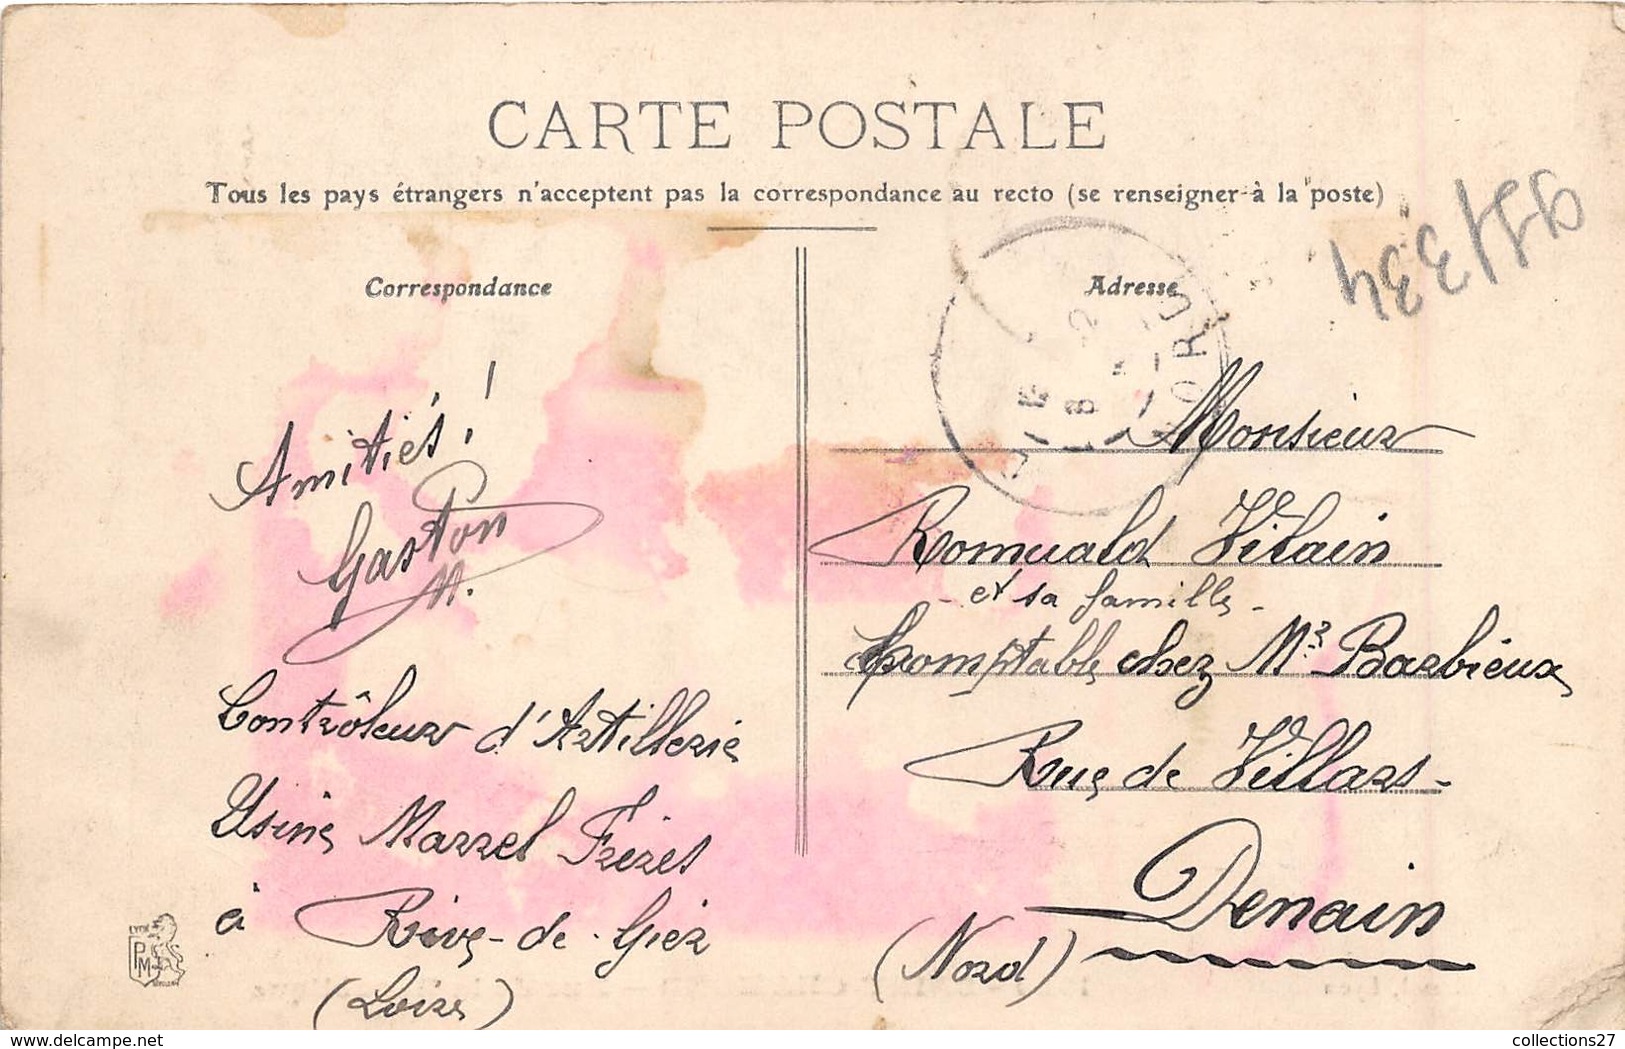 CARTE POSTALE
Tous les pays étrangers n'acceptent pas la correspondance au recto (se renseigner à la poste)
Correspondance
Amitiés!
Gaston
M.
Contrôleur d'Artillerie
Usine Marrel Frères
à Rive-de-Gier
(Loire)
LYON
PM
Adresse
NORD
Monsieur
Romuald Vilain
- et sa famille -
Comptable chez Mr Barbieux
Rue de Villars-
Denain
(Nord)
www.delcampe.net
collections27